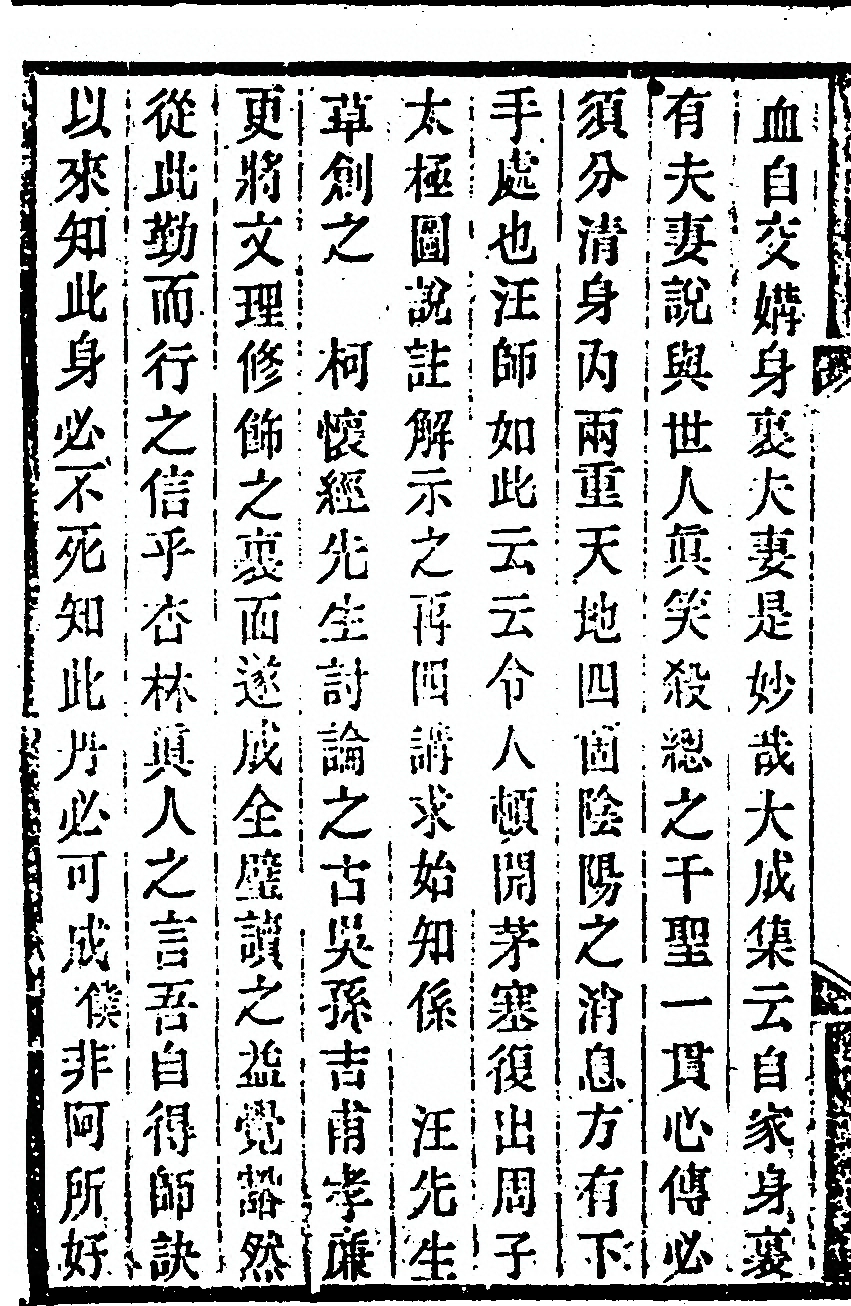 血自交媾身裏夫妻是妙哉大成集云自家身裏
有夫妻說與世人眞笑殺總之千聖一貫心傳必
須分清身內兩重天地四箇陰陽之消息方有下
手處也汪師如此云云令人頓開茅塞復出周子
太極圖說註解示之再四講求始知係　汪先生
草創之　柯懷經先生討論之古吳孫吉甫孝廉
更將文理修飾之裏面遂成全璧讀之益覺豁然
從此勤而行之信乎杏林眞人之言吾自得師訣
以來知此身必不死知此丹必可成僕非阿所好